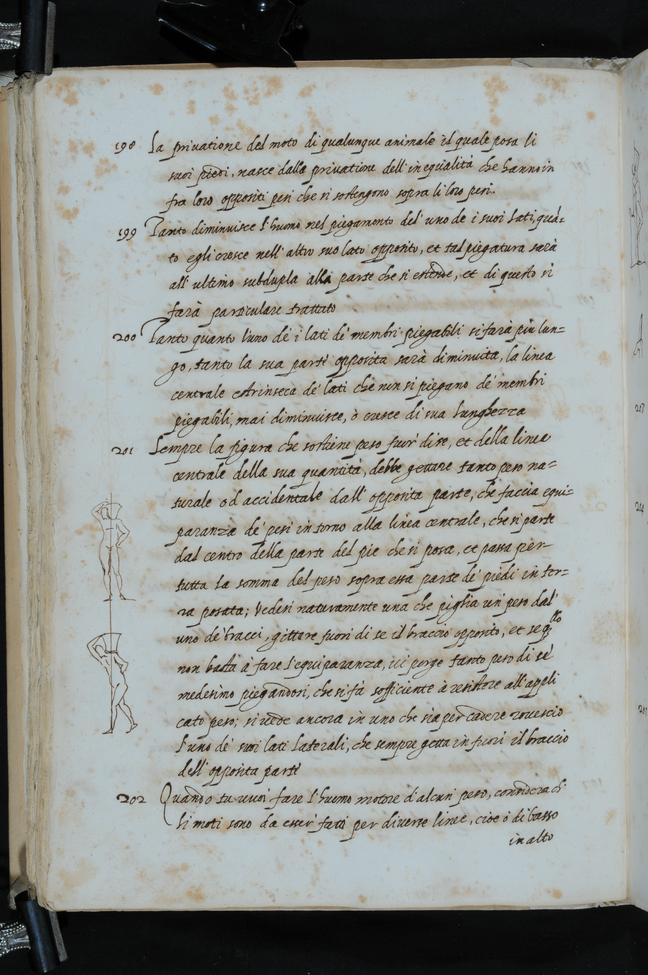 198 La privatione del moto di qualunque animale il quale posa li
suoi piedi, nasce dalla privatione dell'inequalità che hanno in
fra loro oppositi pesi che si sostengono sopra li loro pesi.
199 Tanto diminuisce l'huomo nel piegamento del uno de i suoi lati quā-
to egli cresce nell'altro suo lato opposito, et tal piegatura sarà
all'ultimo subdupla alla parte che si estende, et di questo si
farà particulare trattato
200 Tanto quanto l'uno de i lati de membri piegabili si farà più lun=
go, tanto la sua parte opposita sarà diminuita, la linea
centrale estrinseca de' lati che non si piegano de' membri
piegabili, mai diminuisce, ò cresce di sua lunghezza
201 Sempre la figura che sostiene peso fuor di se, et della linea
centrale della sua quantità, debbe gettare tanto peso na=
turale od accidentale dall'opposita parte, che faccia equi=
paranza de' pesi intorno alla linea centrale, che si parte
dal centro della parte del pie che si posa, et passa per
tutta la somma del peso sopra essa parte de' piedi in ter=
ra posata; Vedesi naturamente uno che piglia un peso dal'
uno de' bracci, gittare fuori di se il braccio opposito, et se q̄llo
non basta à fare l'equiparanza, vi porge tanto peso di se
medesimo piegandosi, che si fa sofficiente à resistere all'appli
cato peso; si vede ancora in uno che sia per cadere rovescio
l'uno de' suoi lati laterali, che sempre getta in fuori il braccio
dell'opposita parte
202 Quando tu vuoi fare l'huomo motore d'alcun peso, considera ch'
li moti sono da esser' fatti per diverse linee, cioè ò di basso
in alto
217
214